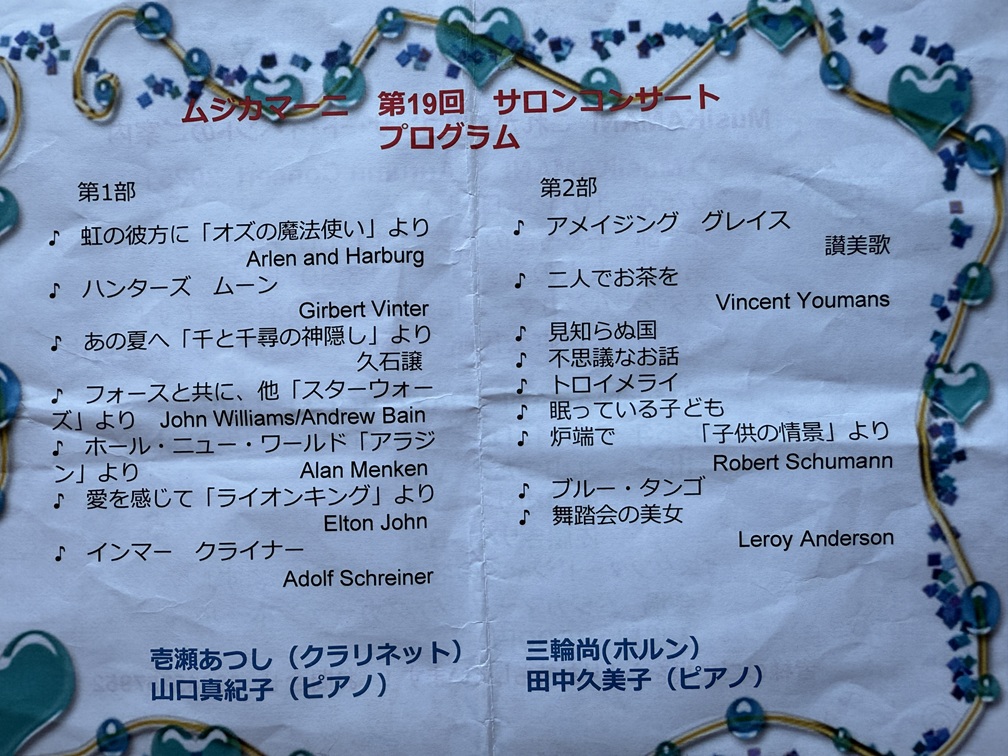 ムジカマーニ　第19回　サロンコンサート
プログラム
第1部
♪　虹の彼方に「オズの魔法使い」より
Arlen and Harburg
♪　ハンターズ　ムーン
Girbert Vinter
♪　あの夏へ「千と千尋の神隠し」より
久石譲
♪　フォースと共に、他「スターウォー
ズ」より　John Williams/Andrew Bain
♪　ホール・ニュー・ワールド「アラジ
ン」より　Alan Menken
♪　愛を感じて「ライオンキング」より
Elton John
♪　インマー　クライナー
Adolf Schreiner
第2部
♪　アメイジング　グレイス
讃美歌
♪　二人でお茶を
Vincent Youmans
♪　見知らぬ国
♪　不思議なお話
♪　トロイメライ
♪　眠っている子ども
♪　炉端で　「子供の情景」より
Robert Schumann
♪　ブルー・タンゴ
♪　舞踏会の美女
Leroy Anderson
壱瀬あつし（クラリネット）
山口真紀子（ピアノ）
三輪尚(ホルン）
田中久美子（ピアノ）